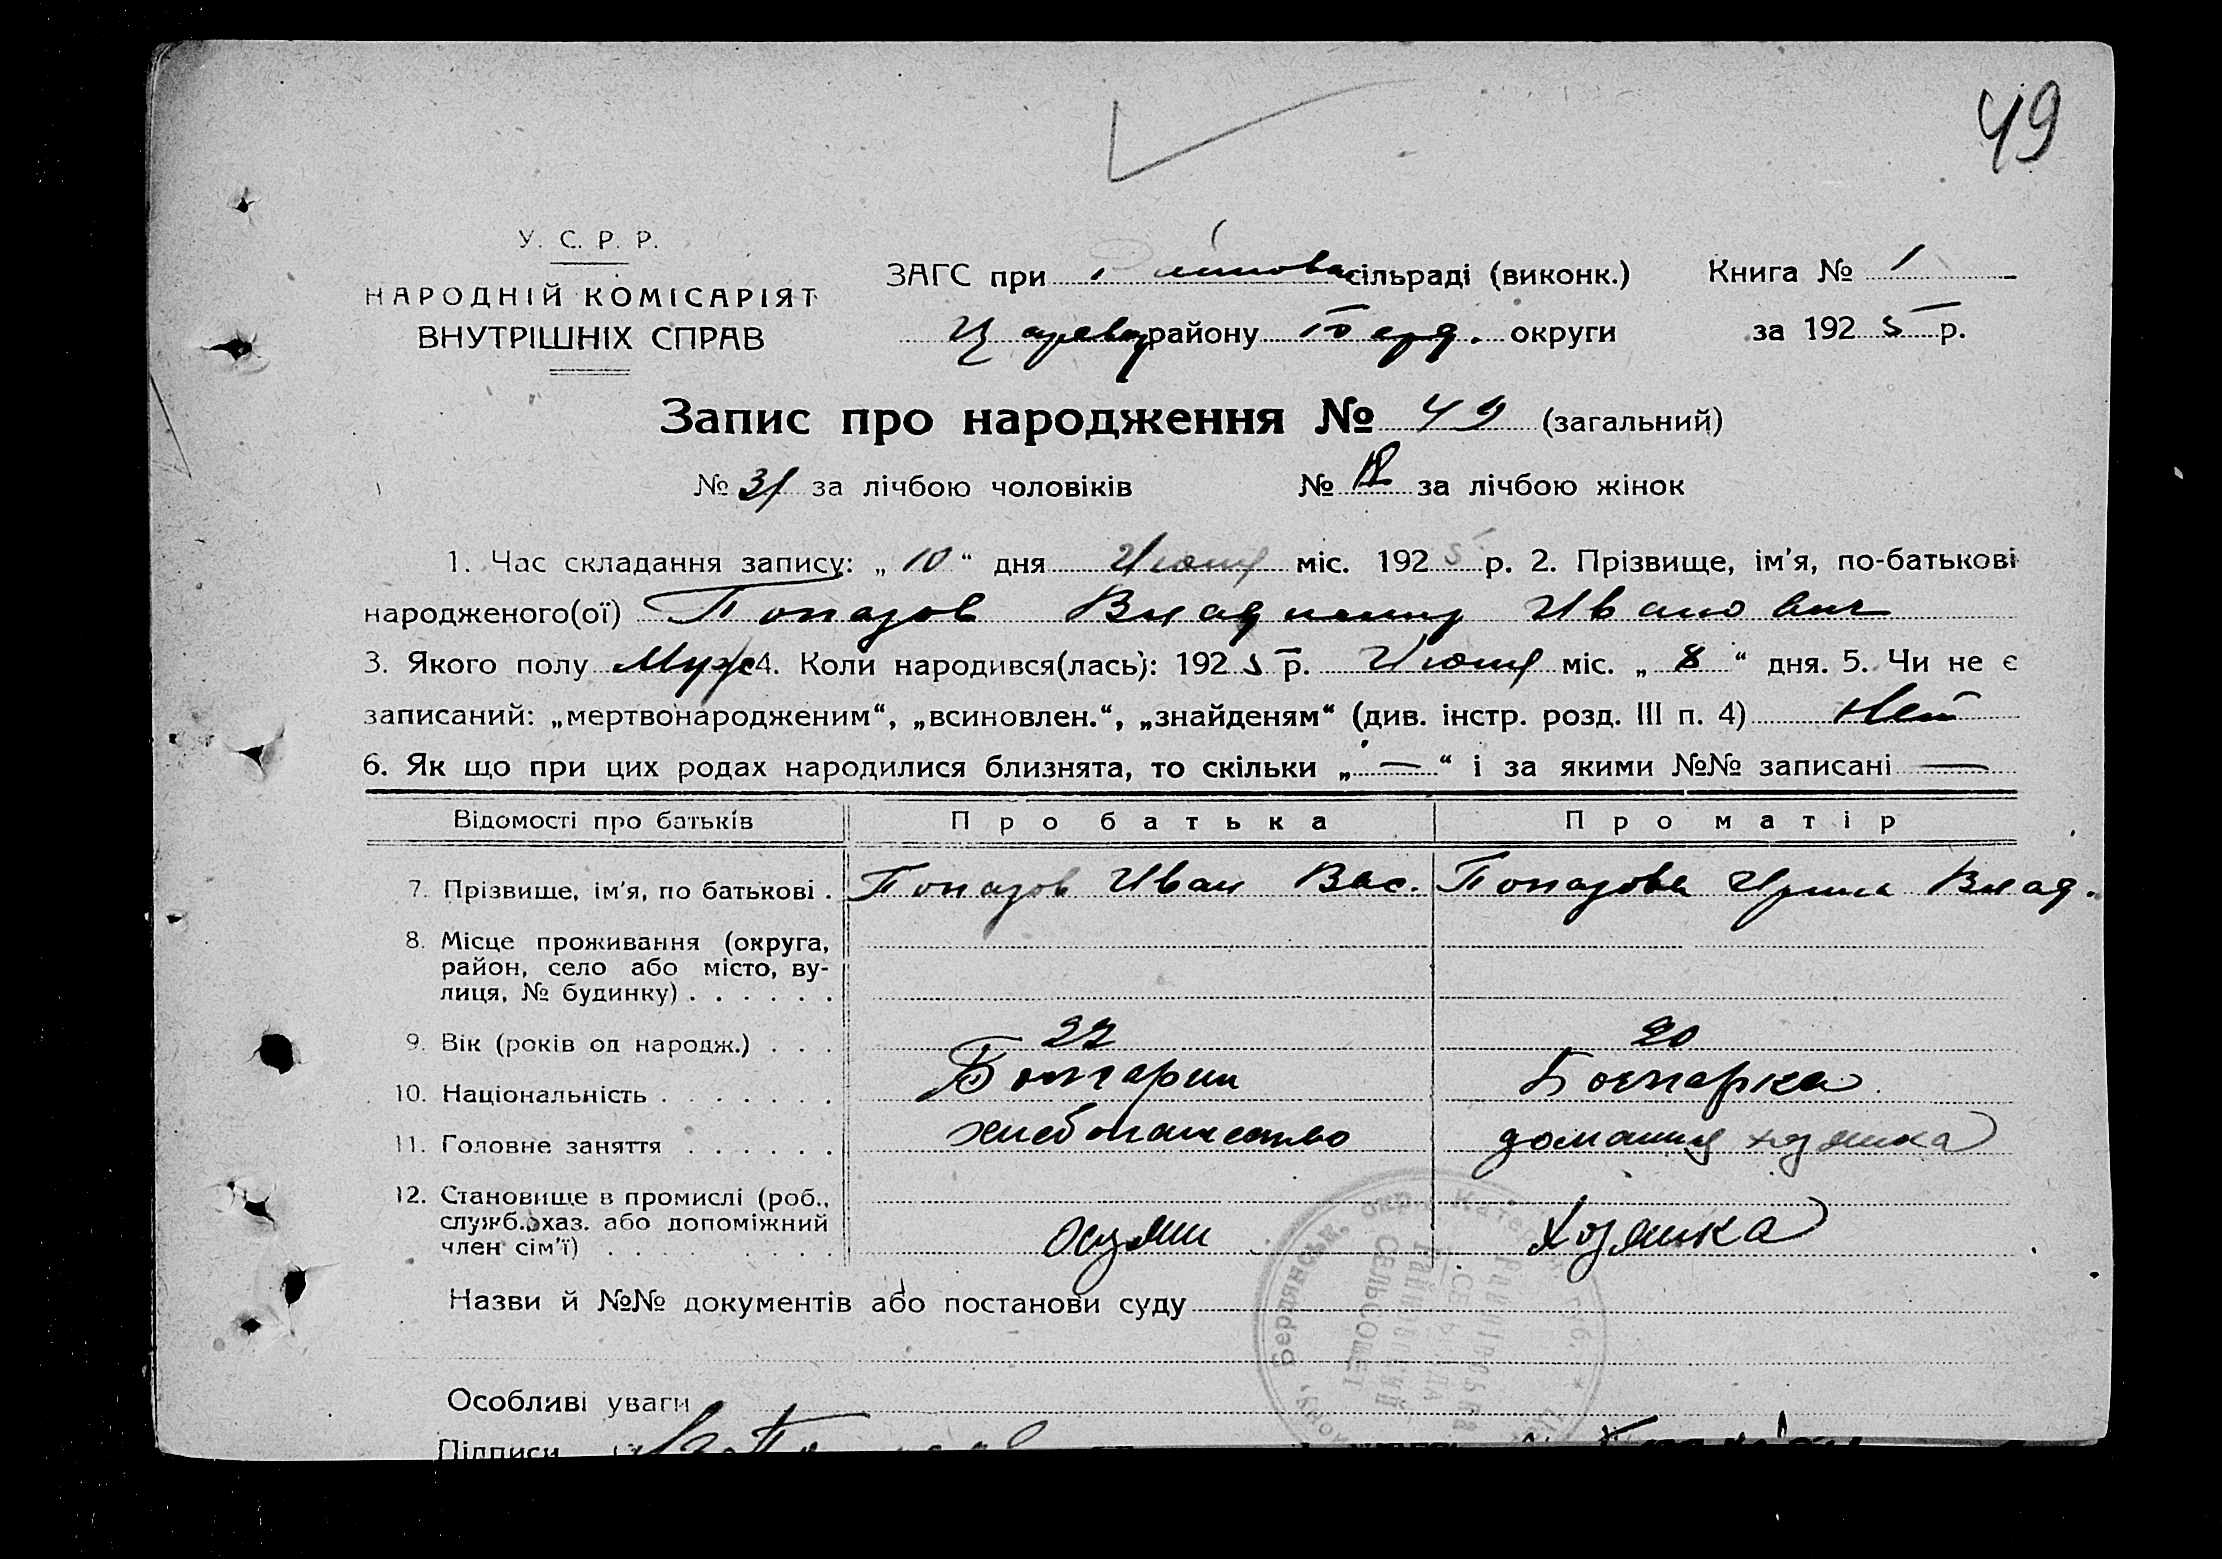 49
У. С. Р. Р.
НАРОДНІЙ КОМІСАРІЯТ
ВНУТРІШНІХ СПРАВ
ЗАГС при сільраді (виконк.) Книга № 1
Царев району Берд. округи за 1925 р.
Запис про народження № 49 (загальний)
№ 31 за лічбою чоловіків № за лічбою жінок
1. Час складання запису: „ 10 “ дня міс. 1925 р. 2. Прізвище, ім’я, по-батькові
народженого(ої) Попазов Владимир Иванович
3. Якого полу Муж 4. Коли народився(лась): 1925 р. міс. „ 8 “ дня. 5. Чи не є
записаний: „мертвонародженим“, „всиновлен.“, „знайденям“ (див. інстр. розд. III п. 4) Нет
6. Як що при цих родах народилися близнята, то скільки „ — “ і за якими №№ записані —
Відомості про батьків Про батька Про матір
7. Прізвище, ім’я, по батькові . Попазов Иван Вас. Попазова Ирина Влад.
8. Місце проживання (округа,
район, село або місто, ву-
лиця, № будинку) . . . . . .
9. Вік (років од народж.) . . . 22 20
10. Національність . . . . . . . Болгарин Болгарка
11. Головне заняття . . . . . . хлебопашество домашняя хозяйка
12. Становище в промислі (роб.,
служб. хаз. або допоміжний
член сім’ї) . . . . . . . . . Хозяин Хозяйка
Назви й №№ документів або постанови суду
Особливі уваги
Підписи